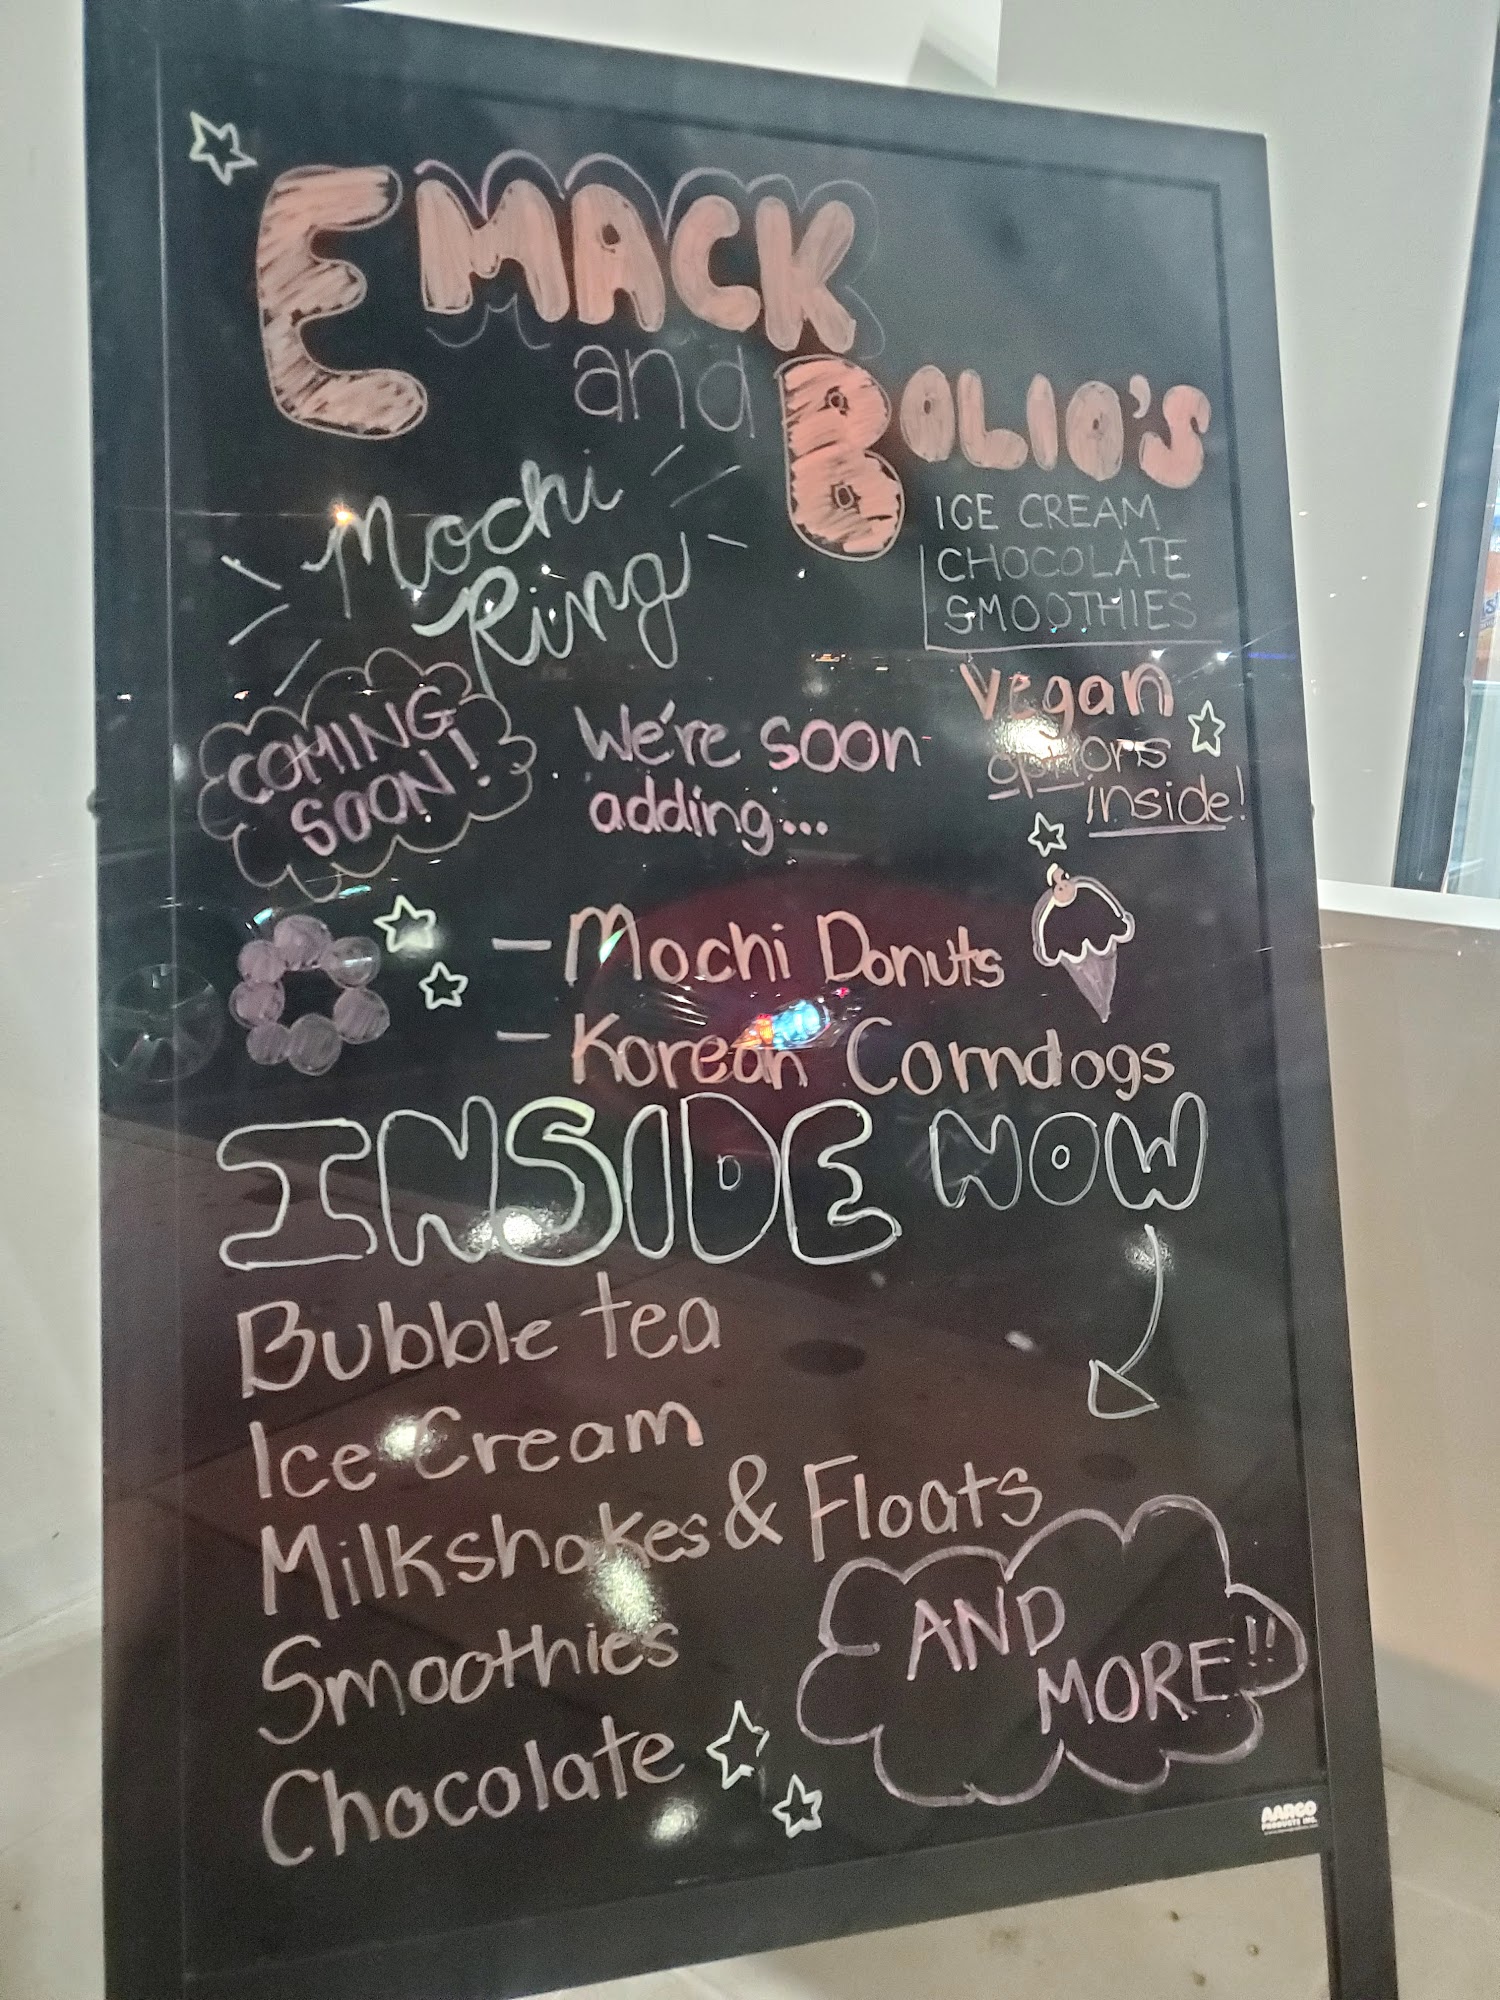 EMACK
and
BOLIO'S
ICE CREAM
CHOCOLATE
SMOOTHIES
Mochi
Ring
COMING
SOON!
We're soon
adding...
vegan
options
inside!
- Mochi Donuts
- Korean Corndogs
INSIDE NOW
Bubble tea
Ice Cream
Milkshakes & Floats
Smoothies
Chocolate
AND
MORE!!
AARCO
PRODUCTS INC.